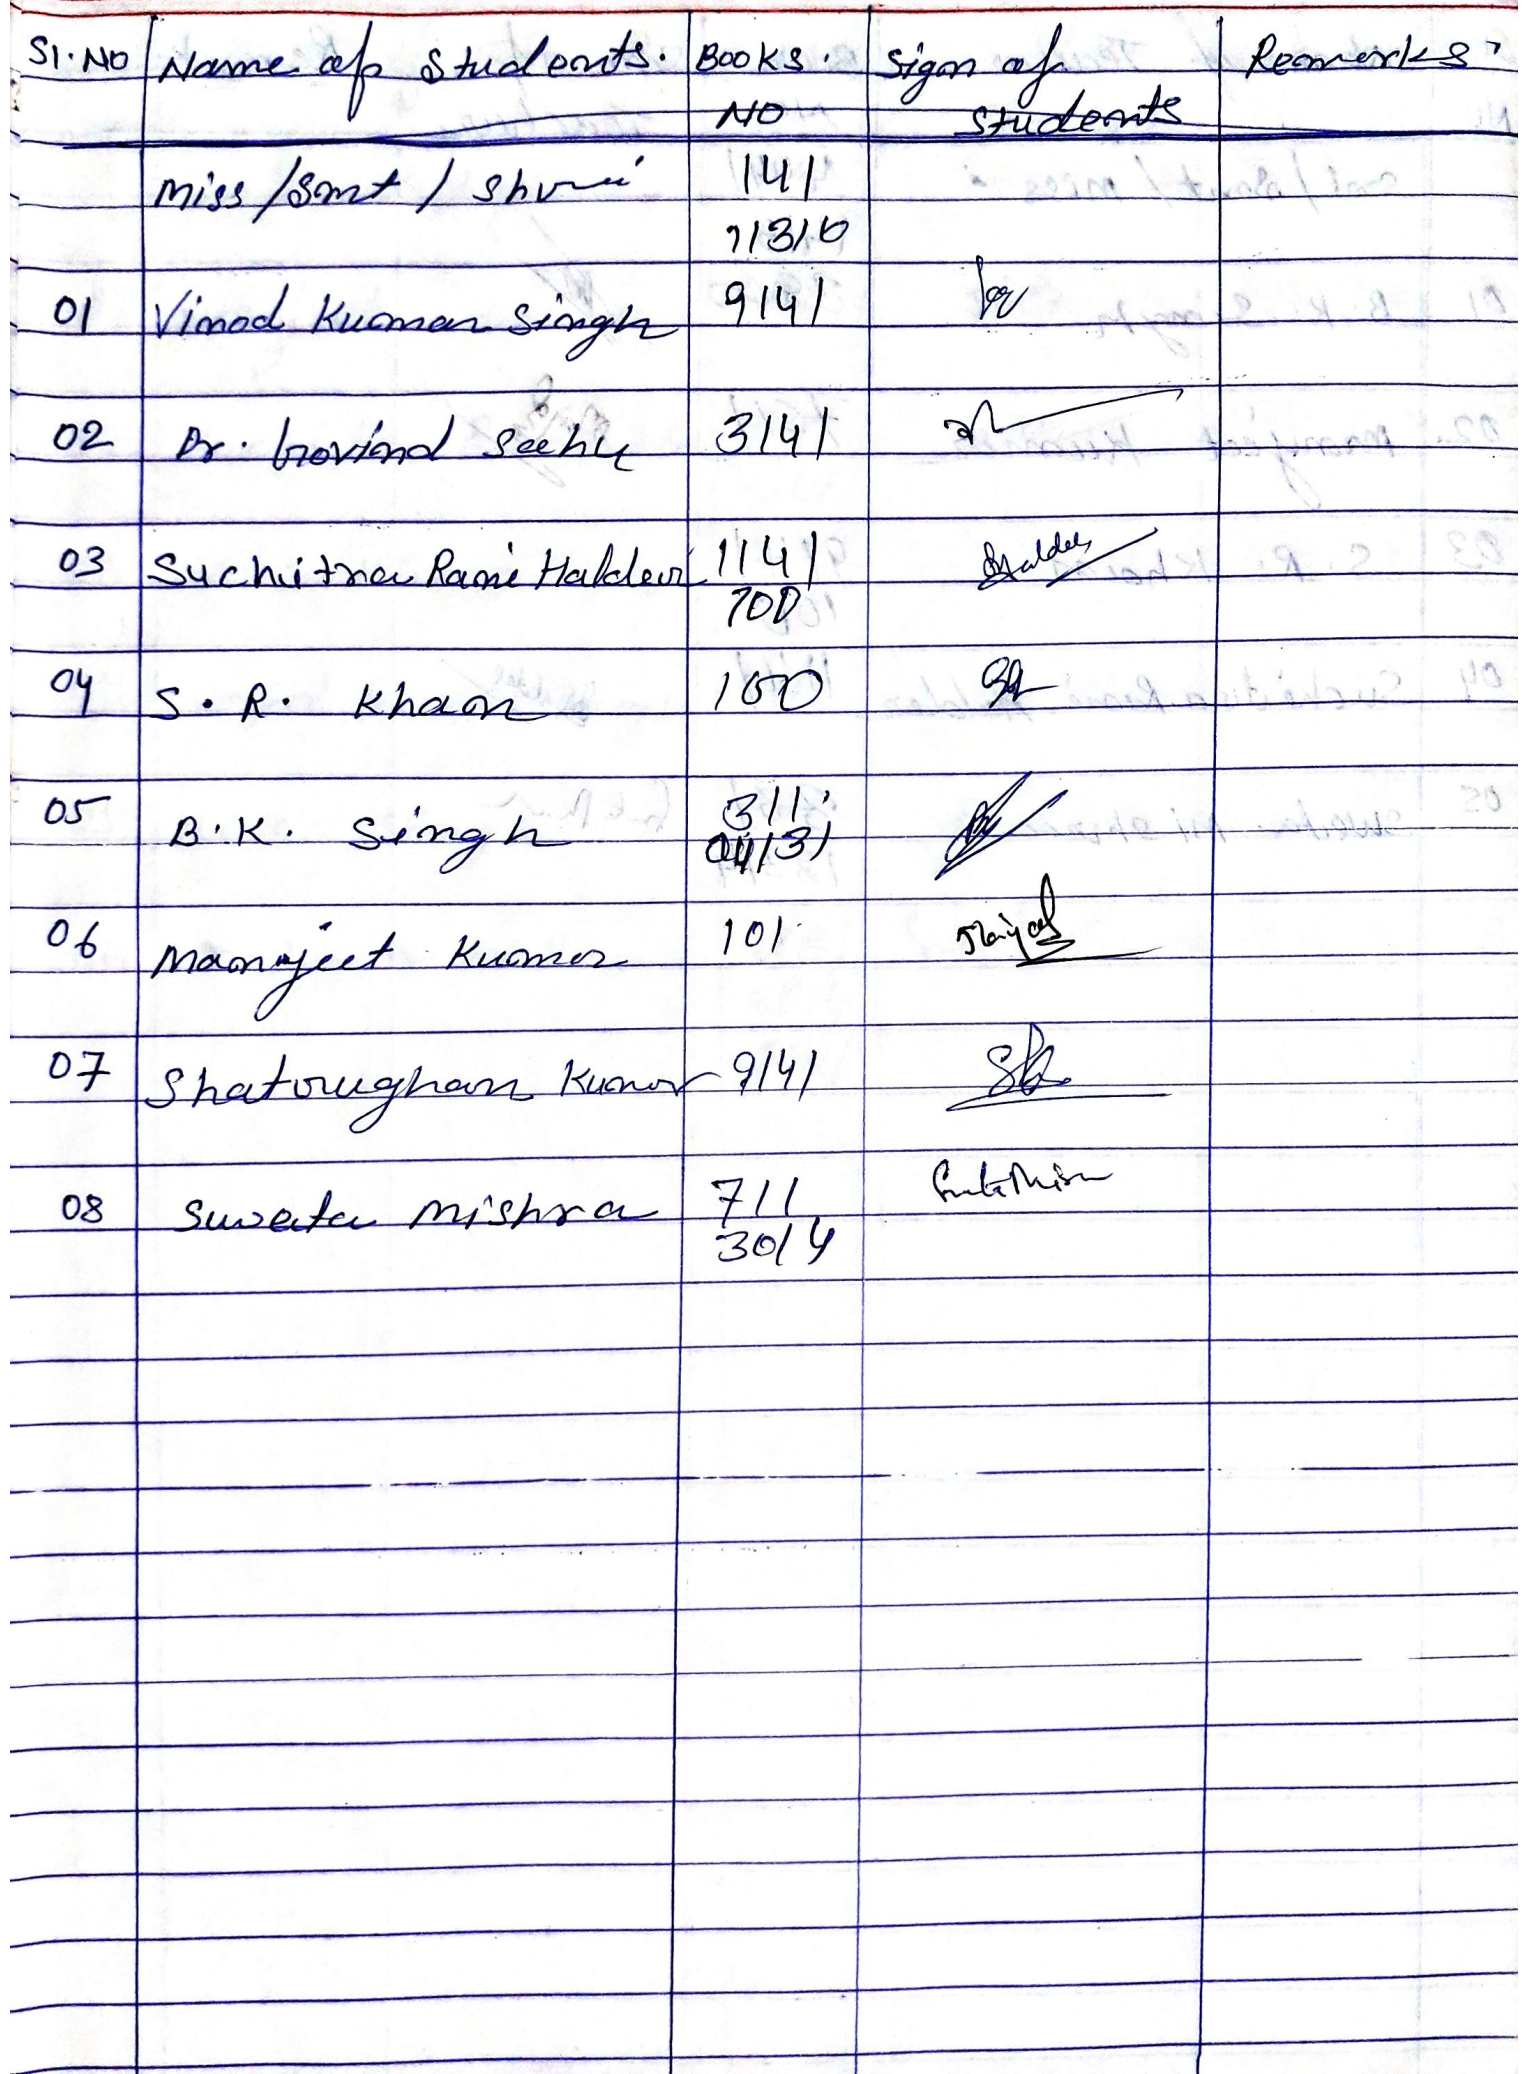 Sl. No Name of Students. Books. Sign of Remarks
No Students
Miss / Smt / Shri 141
11310
01 Vinod Kumar Singh 9141
02 Dr. Govind Sahu 3141
03 Suchitra Rani Halder 1141
700
04 S. R. Khan 100
05 B. K. Singh 311
06 Manjeet Kumar 101
07 Shatrughan Kumar 9141
08 Sweta Mishra 711
30/4